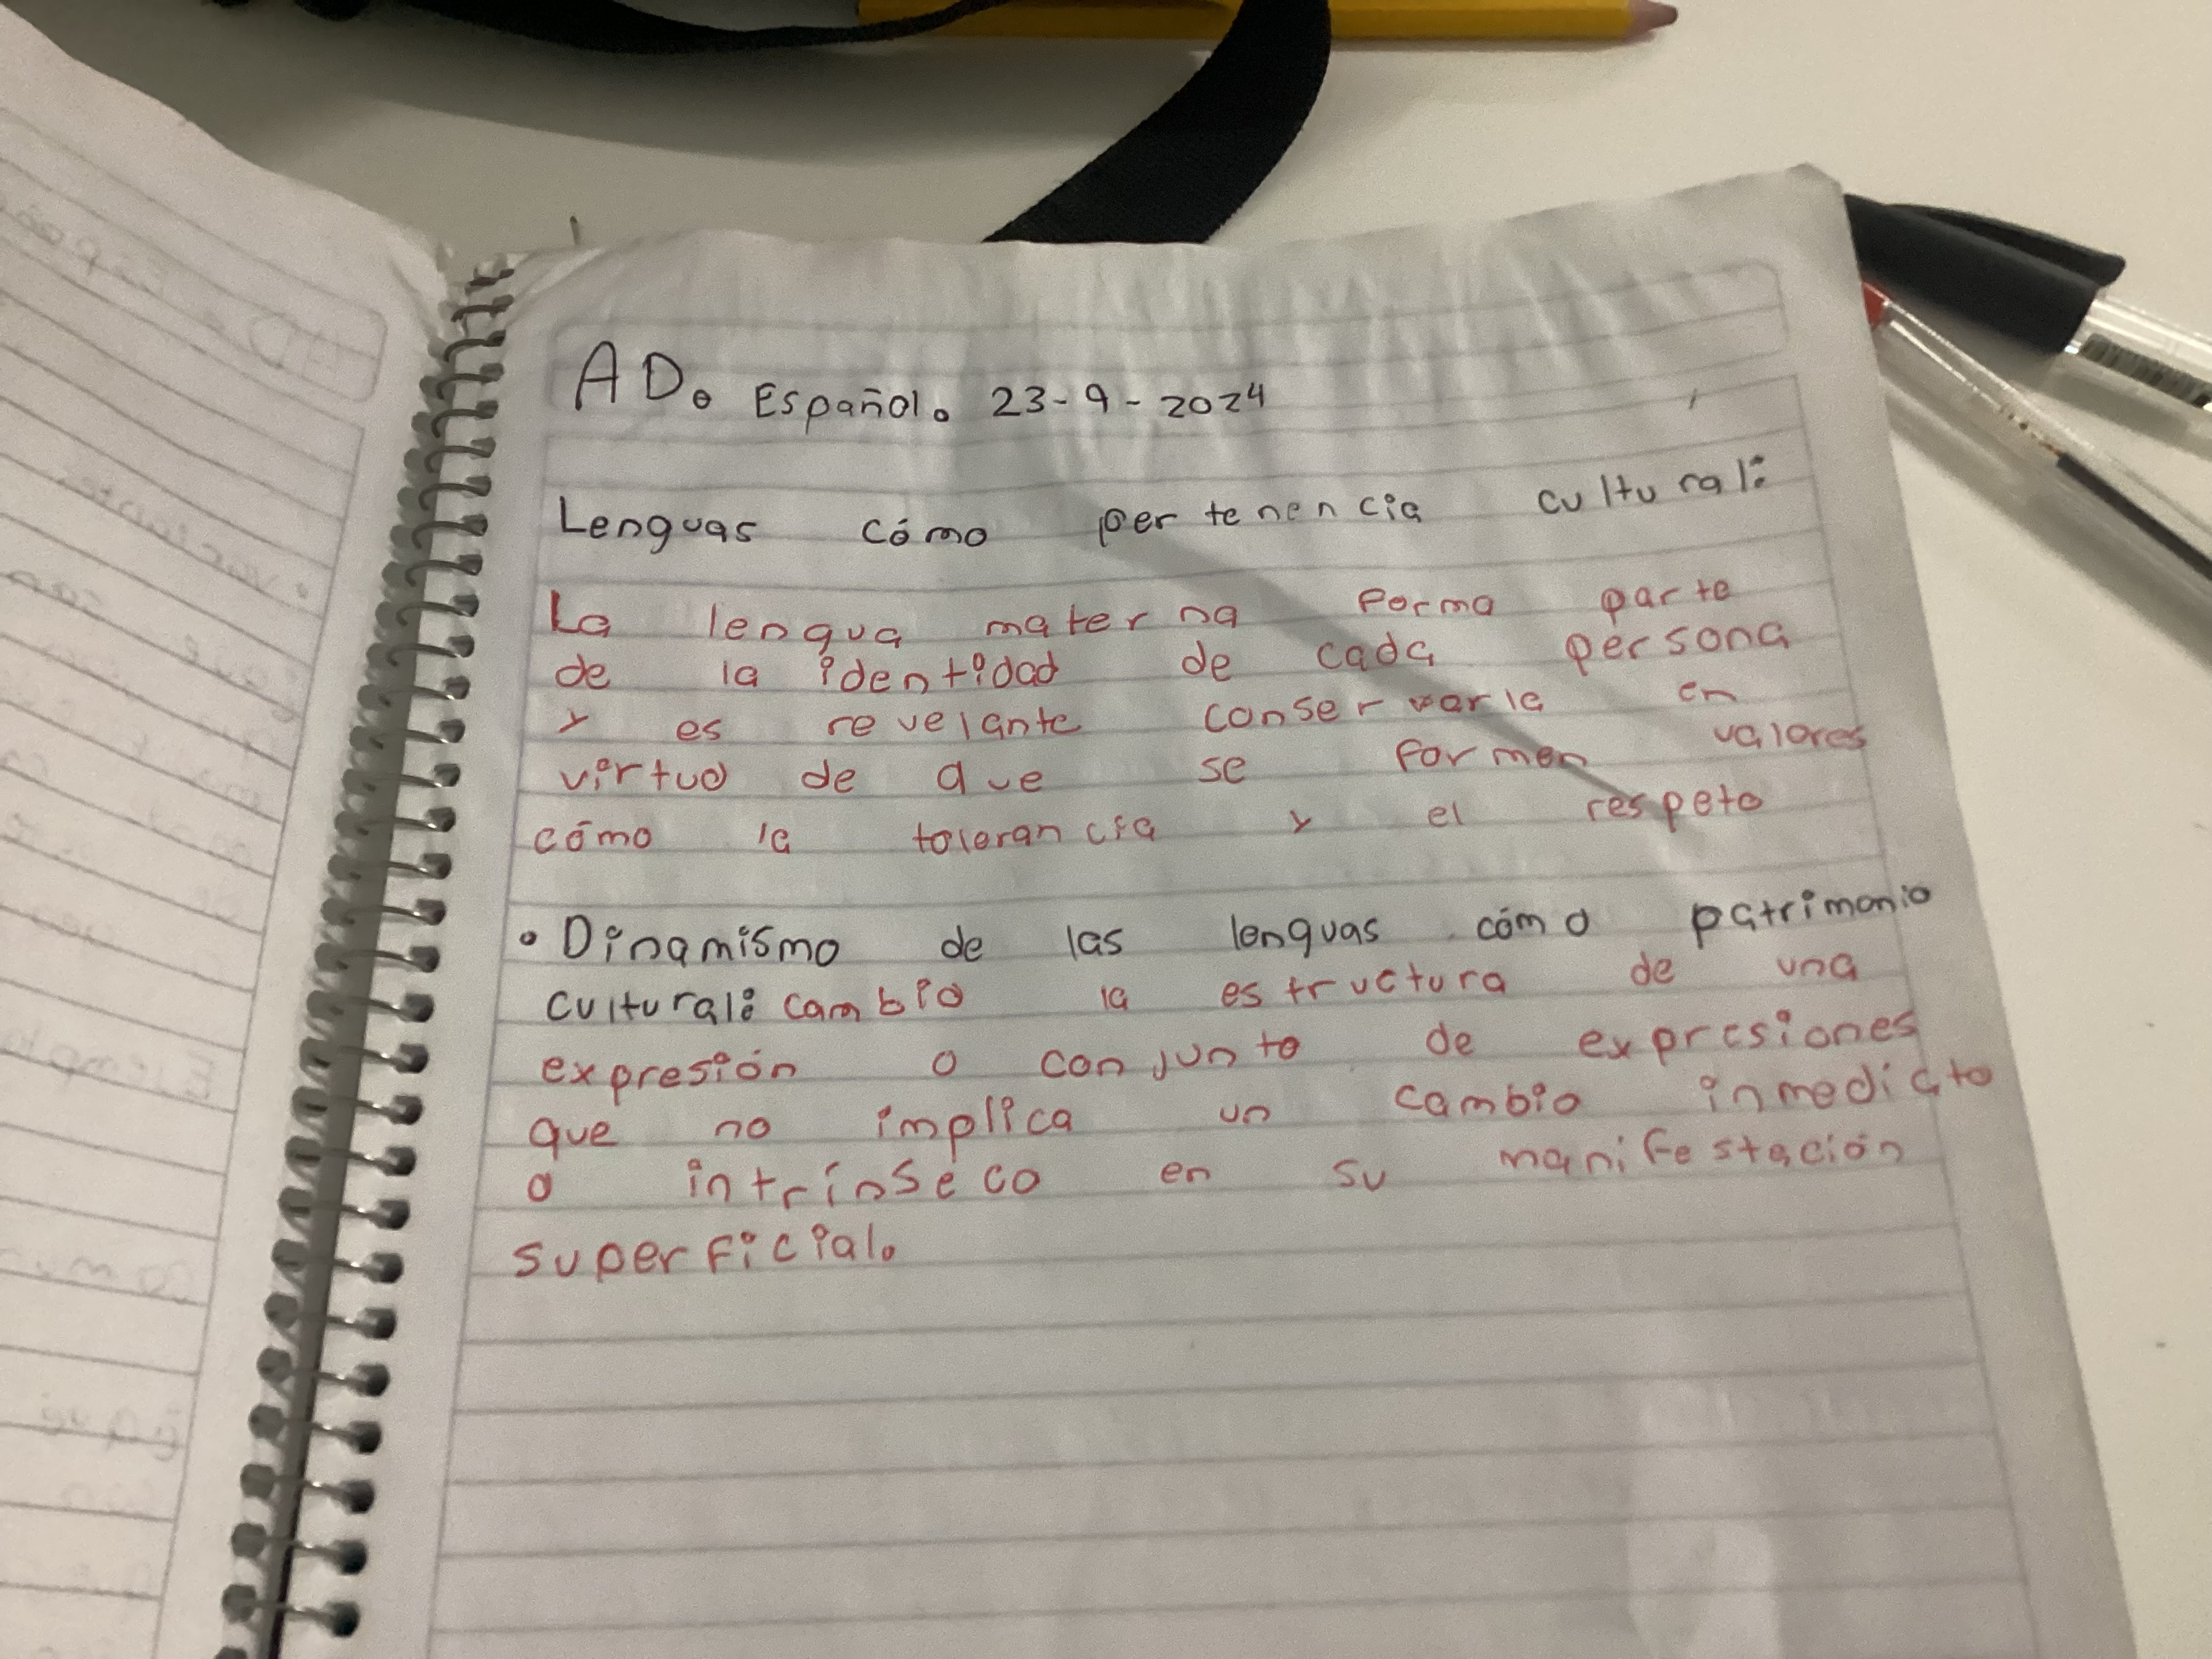 AD. Español. 23-9-2024
Lenguas cómo pertenencia cultural:
La lengua materna forma parte
de la identidad de cada persona
y es revelante conservarla en
virtud de que se formen valores
cómo la tolerancia y el respeto
• Dinamismo de las lenguas cómo patrimonio
cultural: cambio la estructura de una
expresión o conjunto de expresiones
que no implica un cambio inmediato
o intrínseco en su manifestación
superficial.